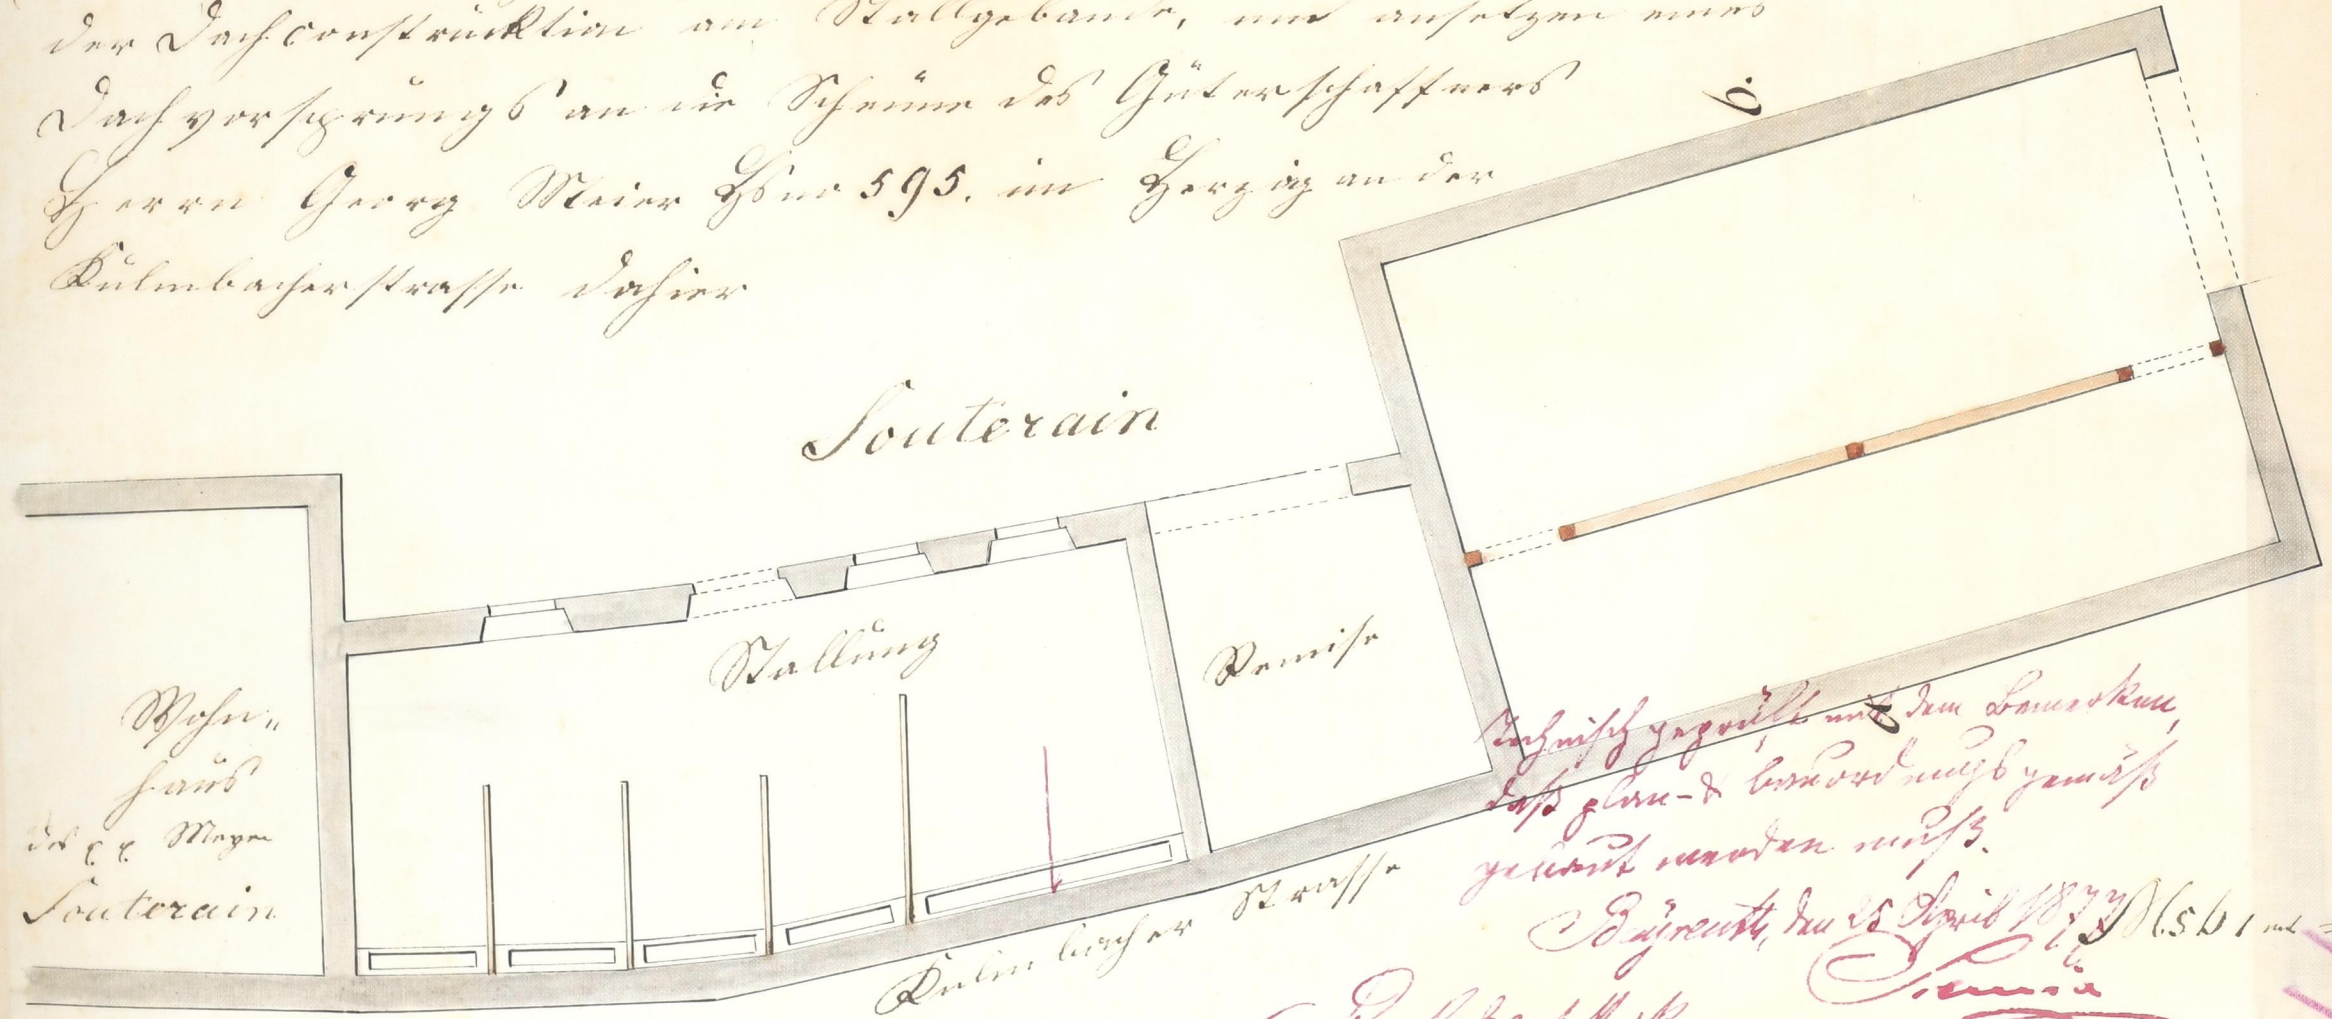 der Dachconstrucktion am Stallgebäude, und ansetzen eines
Dachvorsprungs an die Scheune des Güterschaffners
Herrn Georg Meier Hsnr 595. im Herzig an der
Kulmbacherstrasse dahier
b.
Souterain
Stallung
Remise
Wohn„
haus
des Meyer
Souterain
Kulmbacher Strasse
Technisch geprüft mit dem Bemerken,
daß plan- & bauordnungsgemäß
gebaut werden muß.
Bayreuth, den 25 April 1877